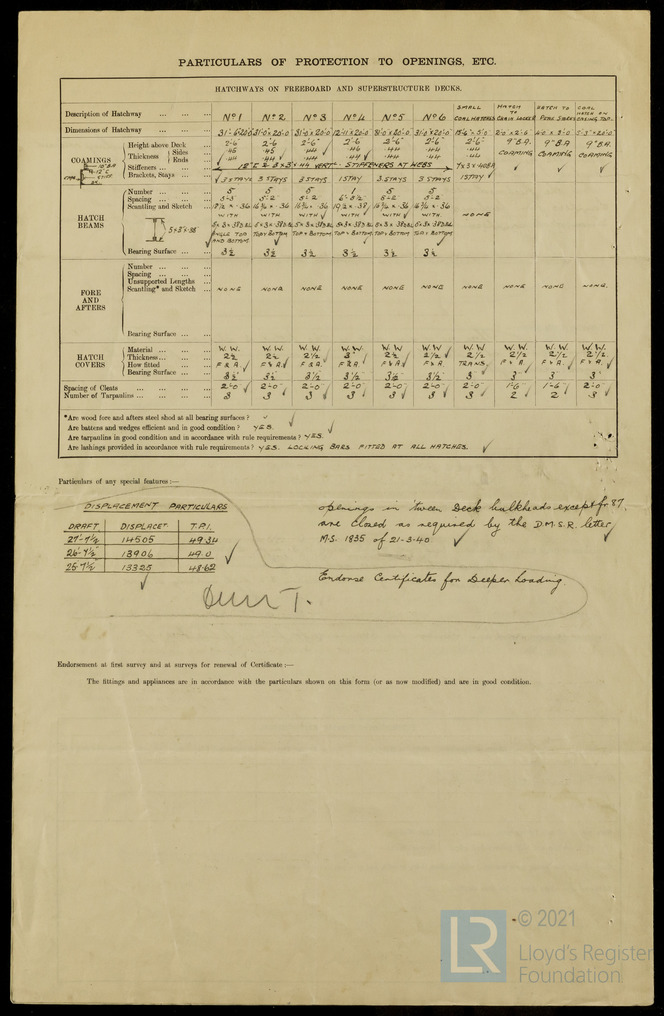 PARTICULARS OF PROTECTION TO OPENINGS, ETC.
HATCHWAYS ON FREEBOARD AND SUPERSTRUCTURE DECKS.
Description of Hatchway Nº1 Nº2 Nº3 Nº4 Nº5 Nº6 SMALL COAL HATCHES HATCH TO CHAIN LOCKER HATCH TO PEAK STORES COAL HATCH ON CASING TOP.
Dimensions of Hatchway
COAMINGS
Height above Deck 2'-6" 2'-6 2'-6" 2'-6 2'-6" 2'-6" 2'-6" 9" B.A. 9" B.A 9" B.A.
Thickness Sides .45 .45 .44 .46 .44 .44 COAMING COAMING COAMING
Ends .44 .44 .44 .44 .44 .44
Stiffeners STIFFENERS AT WEBS
Brackets, Stays 3 STAYS 3 STAYS 3 STAYS 1 STAY 3 STAYS 3 STAYS 1 STAY
HATCH BEAMS
Number 5 5 5 1 5 5
Spacing 5-2 5-2 5-2 5-2
Scantling and Sketch
WITH WITH WITH WITH WITH WITH NONE
ANGLE TOP AND BOTTOM TOP & BOTTOM TOP & BOTTOM TOP & BOTTOM TOP & BOTTOM TOP & BOTTOM
Bearing Surface 3½ 3½ 3½ 3½ 3½ 3½
FORE AND AFTERS
Number
Spacing
Unsupported Lengths
Scantling* and Sketch NONE NONE NONE NONE NONE NONE NONE NONE NONE NONE.
Bearing Surface
HATCH COVERS
Material W.W. W.W. W.W. W.W. W.W. W.W. W.W. W.W. W.W. W.W.
Thickness 2½ 2½ 2½ 3" 2½ 2½ 2½ 2½ 2½ 2½
How fitted F & A. F & A F & A. F & A. F & A F & A TRANS. F & A. F & A. F & A.
Bearing Surface 3½ 3½ 3½ 3½ 3½ 3½ 3" 3" 3" 3"
Spacing of Cleats 2'-0 2'-0" 2'-0" 2'-0 2'-0 2'-0" 2'-0" 1'-6 1'-6 2'-0"
Number of Tarpaulins 3 3 3 3 3 3 3 2 2 3
*Are wood fore and afters steel shod at all bearing surfaces?
Are battens and wedges efficient and in good condition? YES.
Are tarpaulins in good condition and in accordance with rule requirements? YES.
Are lashings provided in accordance with rule requirements? YES. LOCKING BARS FITTED AT ALL HATCHES.
Particulars of any special features:—
DISPLACEMENT PARTICULARS
DRAFT DISPLACET T.P.I.
27'-7½ 14505 49.34
26'-7½ 13906 49.0
25-7½ 13325 48.62
openings in 'tween Deck bulkheads except fr. 87,
are closed as required by the D.M.S.R. letter
M.S. 1835 of 21-3-40
Endorse Certificates for Deeper Loading.
Endorsement at first survey and at surveys for renewal of Certificate:—
The fittings and appliances are in accordance with the particulars shown on this form (or as now modified) and are in good condition.
LR
© 2021
Lloyd's Register
Foundation